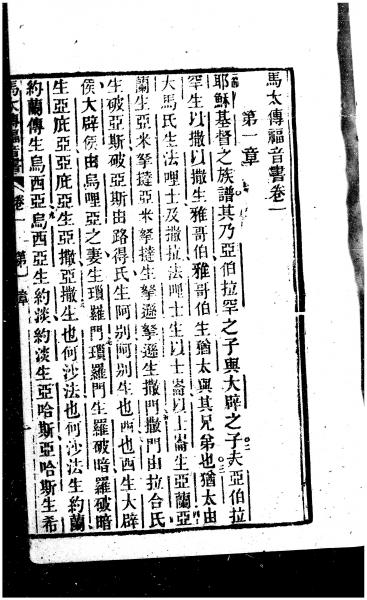 馬太傳福音書卷一
第一章
耶穌基督之族譜其乃亞伯拉罕之子與大辟之子夫亞伯拉
罕生以撒以撒生雅哥伯雅哥伯生猶太與其兄弟也猶太由
大馬氏生法哩士及撒拉法哩士生以士崙以士崙生亞蘭亞
蘭生亞米拏撻亞米拏撻生拏遜拏遜生撒門撒門由拉合氏
生破亞斯破亞斯由路得氏生阿別阿別生也西也西生大辟
侯大辟侯由烏哩亞之妻生瑣羅門瑣羅門生羅破暗羅破暗
生亞庇亞亞庇亞生亞撒亞撒生也何沙法也何沙法生約蘭
約蘭傳生烏西亞烏西亞生約淡約淡生亞哈斯亞哈斯生希
馬太傳福音書
卷一
第一章